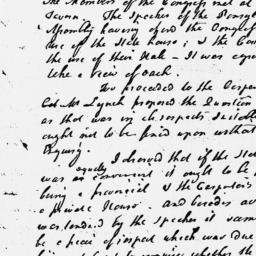 The Members of the Congress met at
Tavern. The Speaker of the Pensyl
Assembly having offerd the Congress
use of the State house; & the Carp
the use of their Hall - It was agree
take a view of each.
We proceeded to the Carpen
Col. Mr Lynch proposed the Question
as that was in all respects Suitable
ought not to be fixed upon without
Enquiry.
I observed that if the State
was equally as convenient it ought to be
being a provincial & the Carpenters
a private House. and besides as
was tendered by the Speaker it seem
be a piece of respect which was Due
to enquire whether the